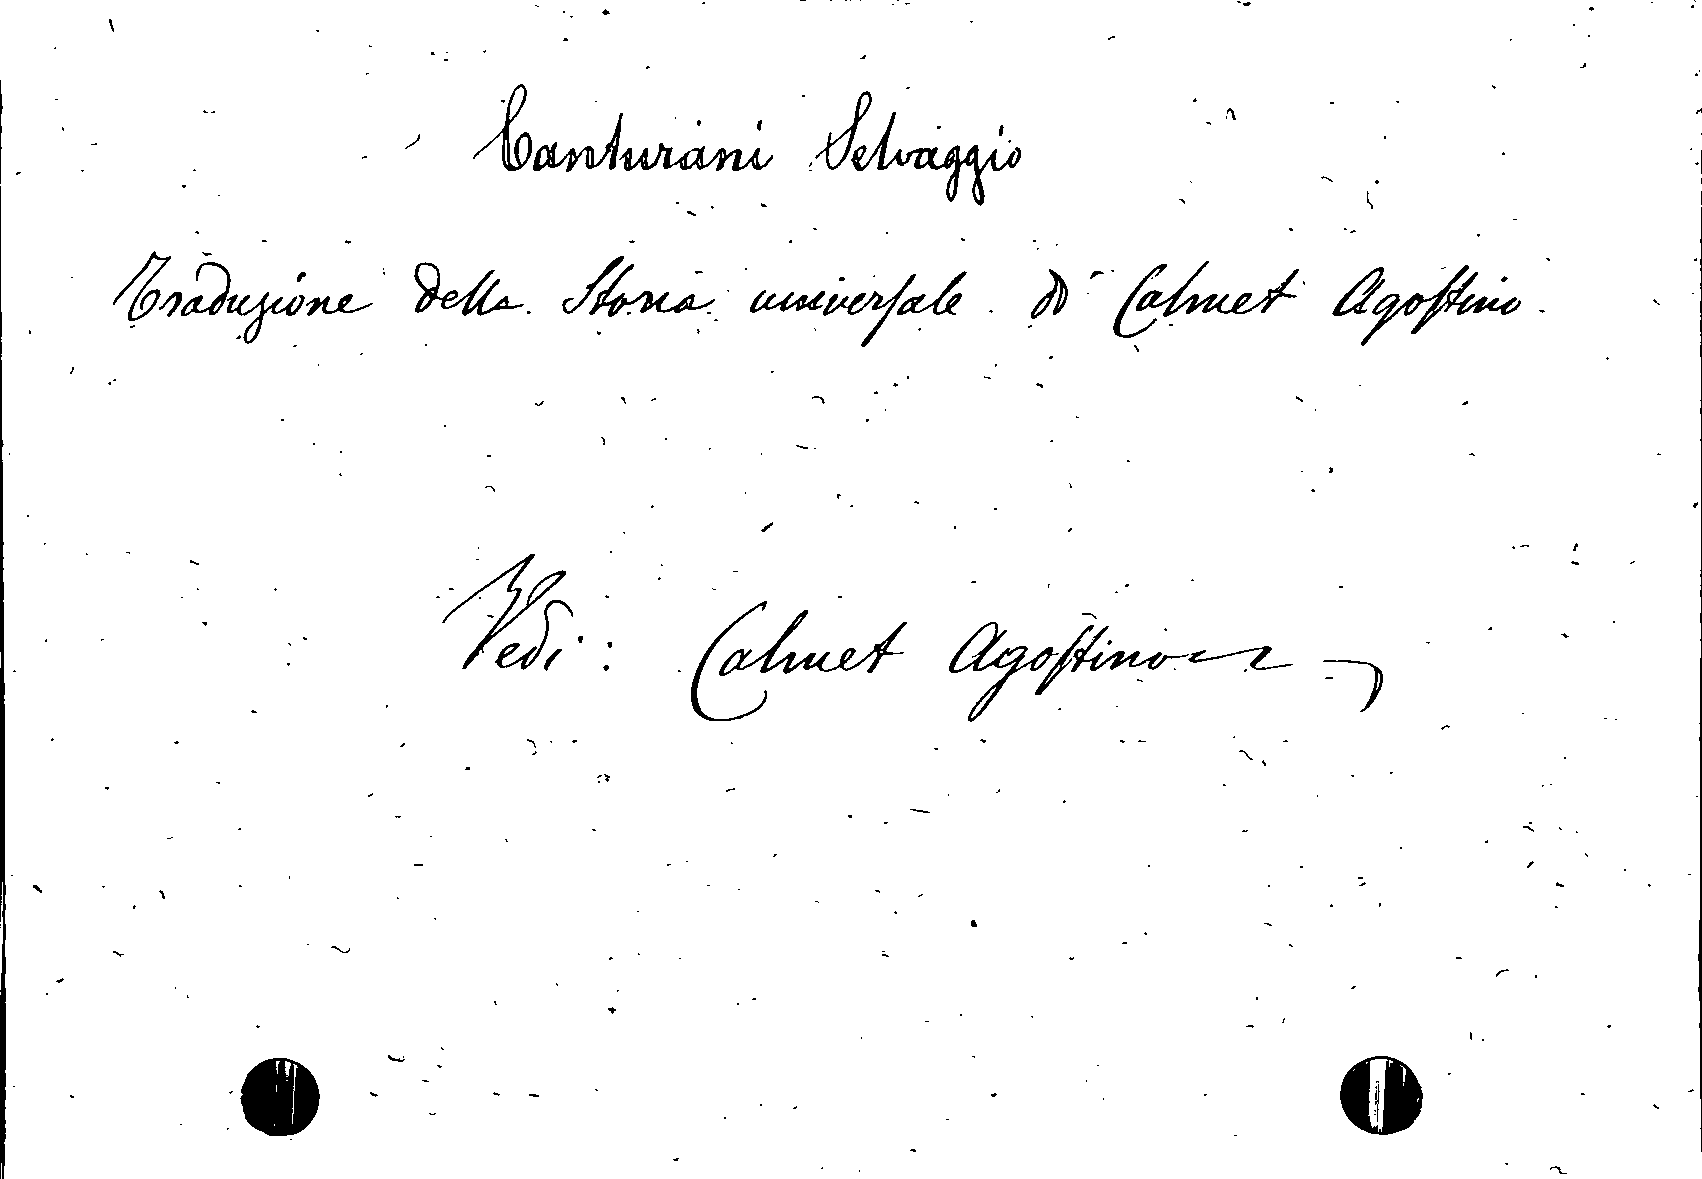 Canturani Selvaggio
Traduzione della Storia universale di Calmet Agostino.
Vedi: Calmet Agostino